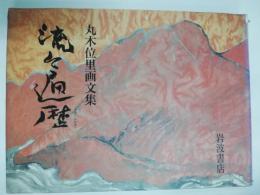 丸木位里画文集
流々遍歴
岩波書店